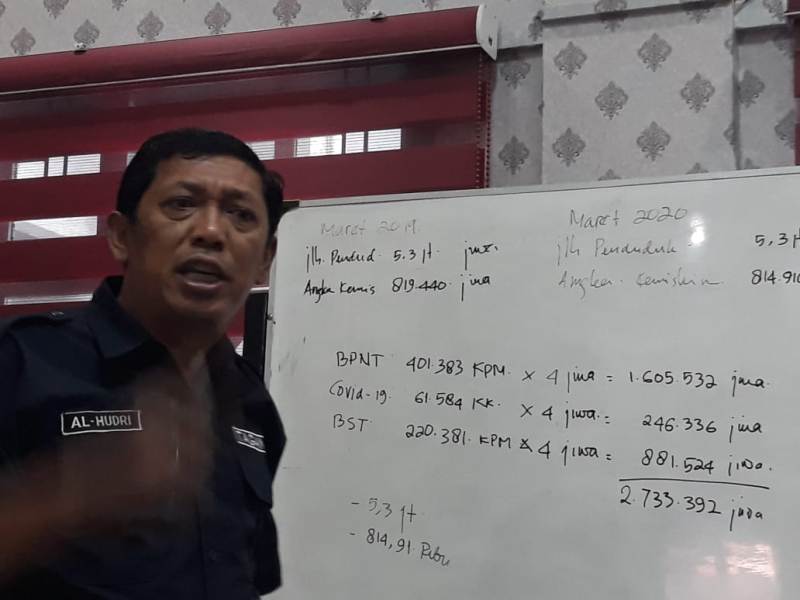 AL-HUDRI
Maret 2019 Maret 2020
jlh. Pendud. 5.3 jt. jiwa. jlh Penduduk. 5,3 jt
Angka Kemis 819.440. jiwa Angka. Kemiskinan. 814.910
BPNT 401.383 KPM. x 4 jiwa = 1.605.532 jiwa.
Covid-19. 61.584 KK. x 4 jiwa. = 246.336 jiwa
BST 220.381. KPM x 4 jiwa = 881.524 jiwa.
2.733.392 jiwa
- 5,3 jt
- 814,91 Ribu